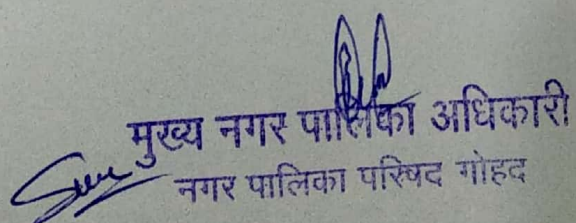 मुख्य नगर पालिका अधिकारी
नगर पालिका परिषद गोहद